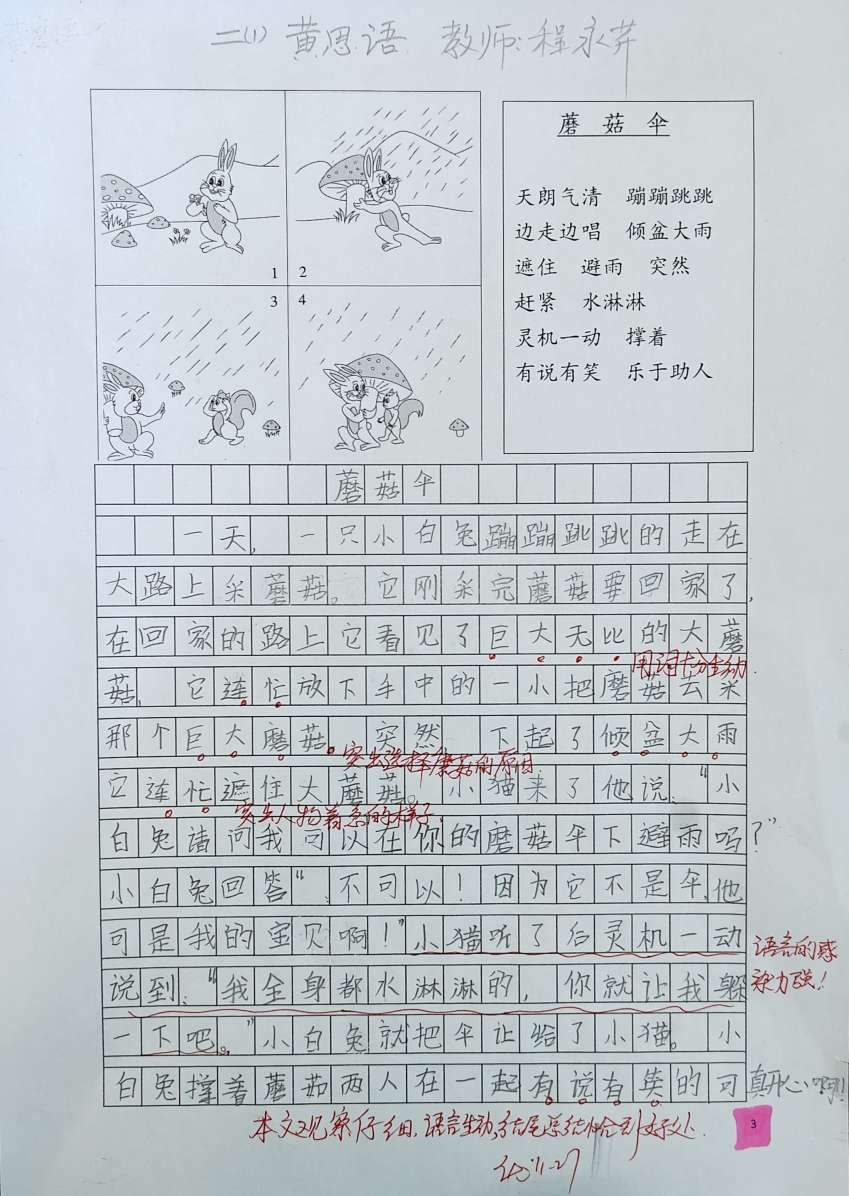 二(1) 黄思语 教师:程永芹
1
2
3
4
蘑菇伞
天朗气清 蹦蹦跳跳
边走边唱 倾盆大雨
遮住 避雨 突然
赶紧 水淋淋
灵机一动 撑着
有说有笑 乐于助人
蘑菇伞
一天,一只小白兔蹦蹦跳跳的走在
大路上采蘑菇。它刚采完蘑菇要回家了,
在回家的路上它看见了巨大无比的大蘑
用词十分生动.
菇,它连忙放下手中的一小把磨菇去采
那个巨大磨菇。突然,下起了倾盆大雨
突出选择磨菇的原因.
它连忙遮住大蘑菇。小猫来了他说:“小
突出人物着急的样子.
白兔请问我可以在你的磨菇伞下避雨吗?”
小白兔回答“:不可以!因为它不是伞,他
可是我的宝贝啊!”小猫听了后灵机一动
语言的感
染力强!
说到:“我全身都水淋淋的,你就让我躲
一下吧。”小白兔就把伞让给了小猫。小
白兔撑着蘑茹两人在一起有说有笑的可真开心啊!
本文观察仔细,语言生动,结尾总结恰到好处.
11-27
3